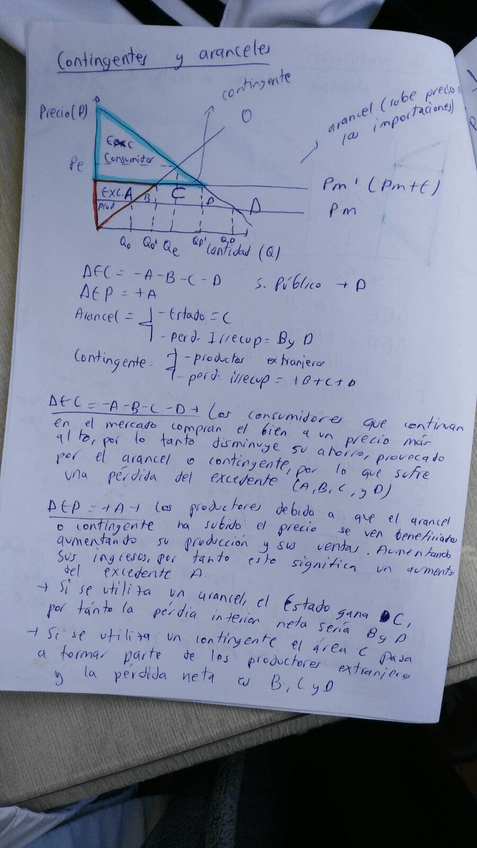 Contingentes y aranceles
contingente
Precio (P)
O
arancel (sube precio
las importaciones)
Exc
Consumidor
Pe
Pm' (Pm+t)
EXC. A B C D D
Prod
Pm
Qo Qo' Qe QD' QD Cantidad (Q)
ΔEC = -A-B-C-D S. Público → D
ΔEP = +A
Arancel = - Estado = C
- perd. Irrecup = B y D
Contingente: - productores extranjero
- perd irrecup = +B+C+D
ΔEC = -A-B-C-D → Los consumidores que continuan
en el mercado compran el bien a un precio más
alto, por lo tanto disminuye su ahorro, provocado
por el arancel o contingente, por lo que sufre
una pérdida del excedente (A, B, C, y D)
ΔEP = +A → Los productores debido a que el arancel
o contingente ha subido el precio se ven beneficiados
aumentando su producción y sus ventas. Aumentando
sus ingresos, por tanto esto significa un aumento
del excedente A.
→ Si se utiliza un arancel, el Estado gana C,
por tánto la pérdia interior neta sería B y D
→ Si se utiliza un contingente el área C pasa
a formar parte de los productores extranjero
y la pérdida neta es B, C y D